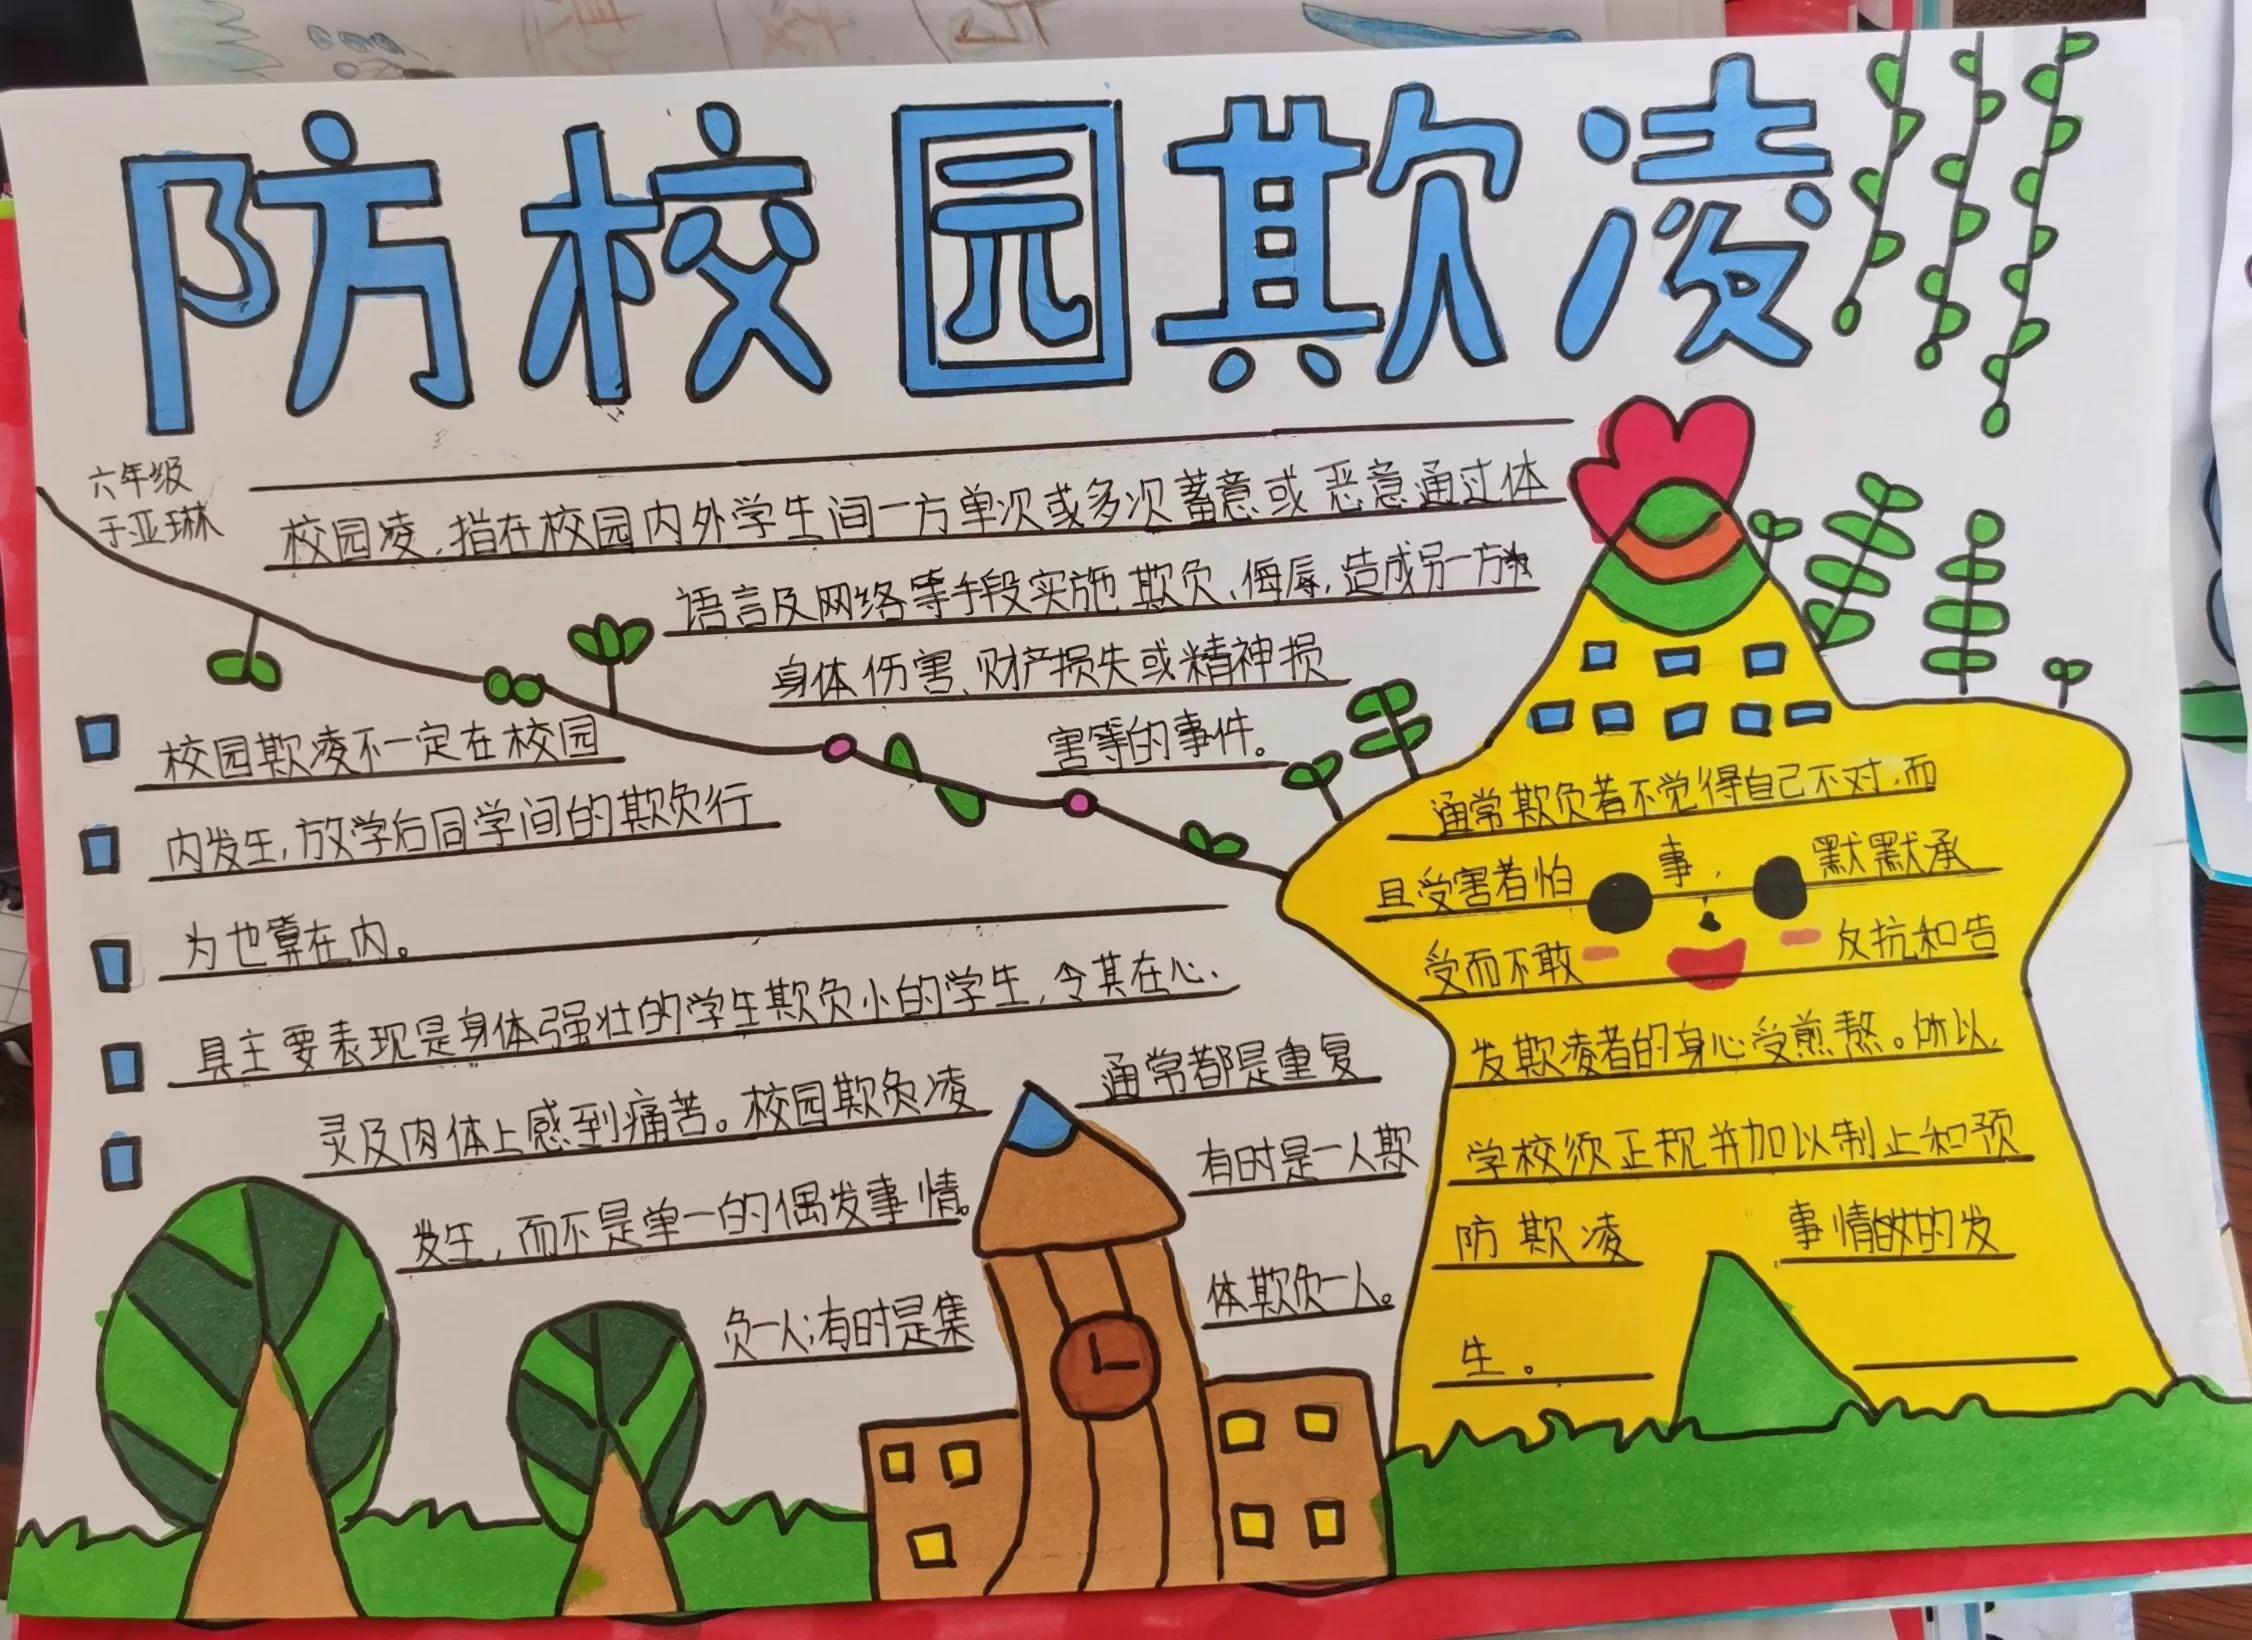 防校园欺凌
六年级
于亚琳
校园凌,指在校园内外学生间一方单次或多次蓄意或恶意通过体
语言及网络等手段实施欺负、侮辱,造成另一方
身体伤害、财产损失或精神损
害等的事件。
校园欺凌不一定在校园
内发生,放学后同学间的欺负行
为也算在内。
具主要表现是身体强壮的学生欺负小的学生,令其在心、
灵及肉体上感到痛苦。校园欺负凌 通常都是重复
发生,而不是单一的偶发事情。 有时是一人欺
负一人;有时是集 体欺负一人。
通常欺负者不觉得自己不对,而
且受害者怕 事, 默默承
受而不敢 反抗和告
发欺凌者的身心受煎熬。所以,
学校须正规并加以制止和预
防欺凌 事情的发
生。